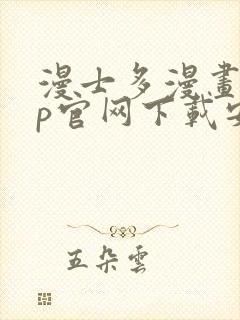 漫士多漫畫
p官网下載安
五朵雲